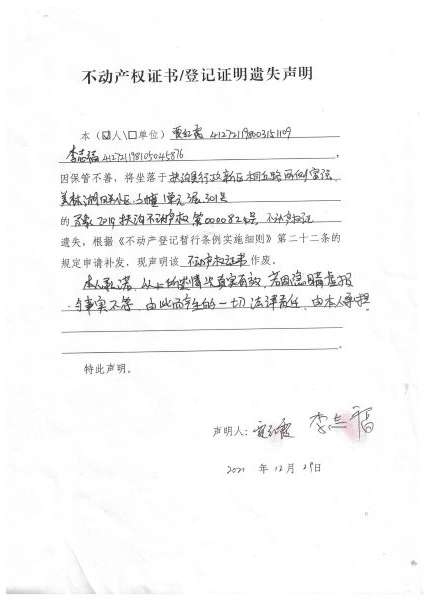 不动产权证书/登记证明遗失声明
本（☑人\□单位） 红霞
李志福
因保管不善，将坐落于扶沟县行政新区桐丘路西侧富弘
美林湖 小区 幢1单元 301号
的 豫2019扶沟不动产权第0000828号 不动产权证
遗失，根据《不动产登记暂行条例实施细则》第二十二条的
规定申请补发，现声明该 不动产权证书 作废。
本人承诺，以上 情况真实有效，若因隐瞒虚报
与事实不符，由此而产生的一切法律责任，由本人承担
。
特此声明。
声明人： 红霞 李志福
2021 年 12 月 29日